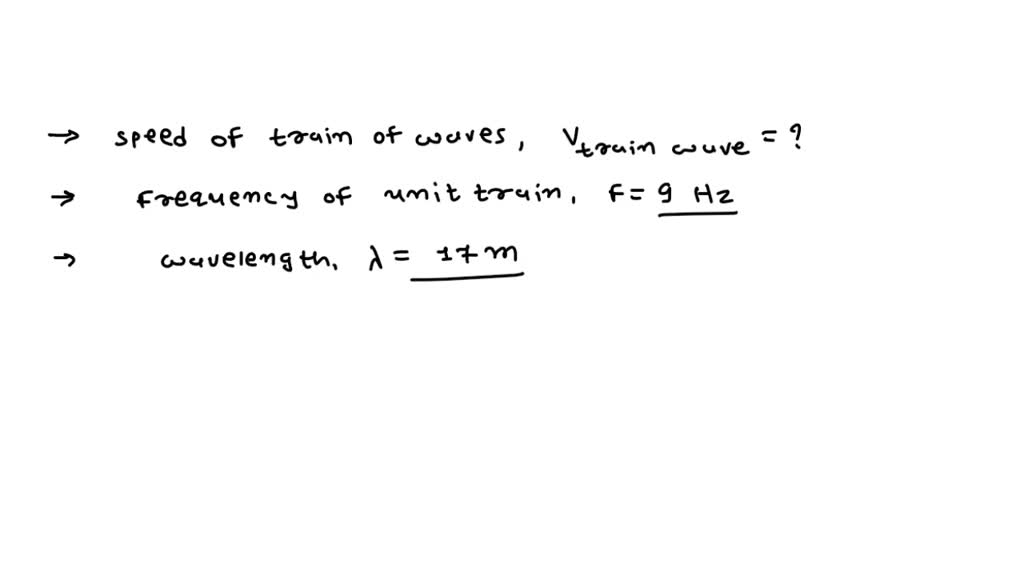 → speed of train of waves, Vtrain wave = ?
→ Frequency of unit train, F = 9 Hz
→ wavelength, λ = 17 m